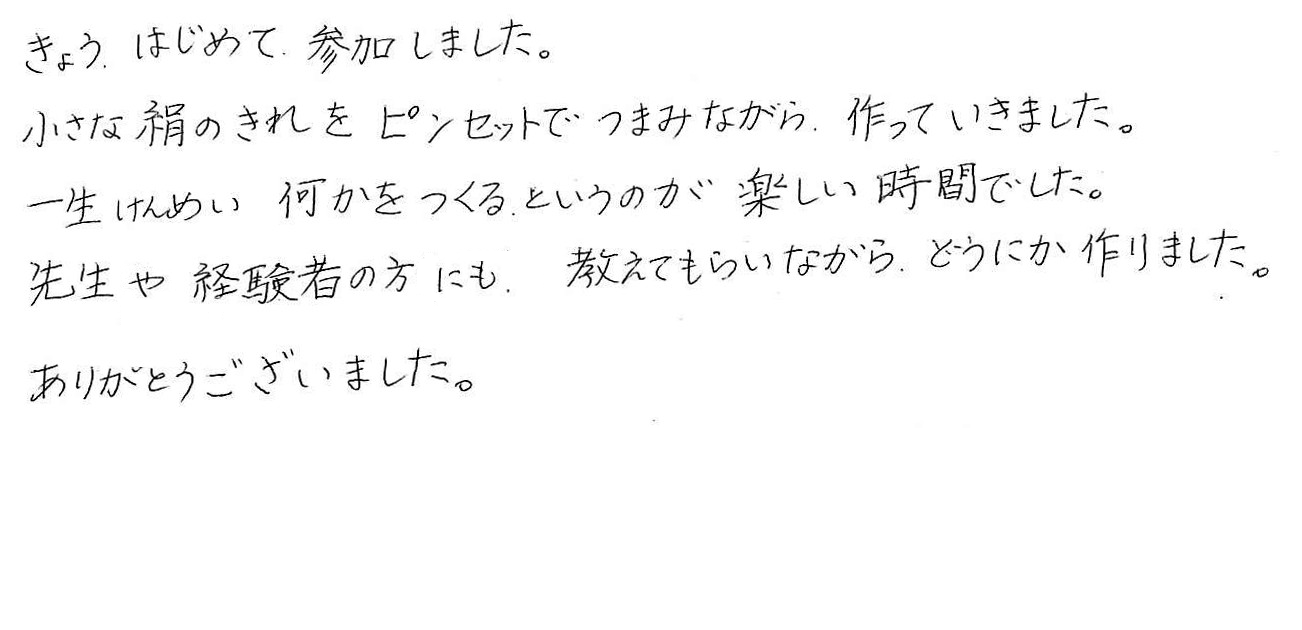 きょう、はじめて、参加しました。
小さな絹のきれを ピンセットで つまみながら、作っていきました。
一生けんめい 何かをつくる、というのが 楽しい 時間でした。
先生や 経験者の方にも、 教えてもらいながら、どうにか作りました。
ありがとうございました。